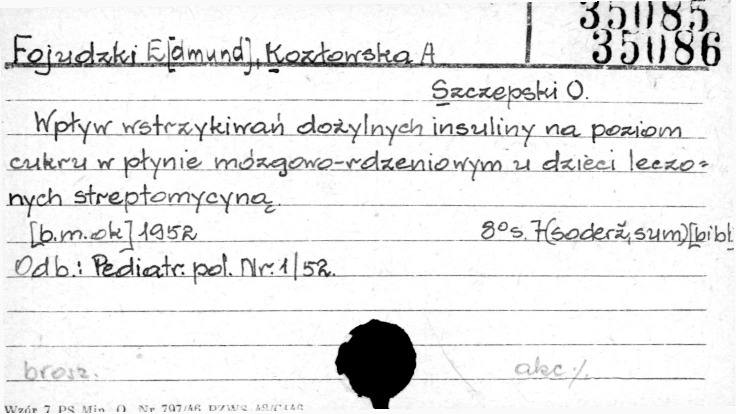 35085
35086
Fojudzki E[dmund], Kozłowska A
Szczepski O.
Wpływ wstrzykiwań dożylnych insuliny na poziom
cukru w płynie mózgowo-rdzeniowym u dzieci leczo=
nych streptomycyną.
[b.m.ok] 1952 8° s. 7 (soderž, sum) [bibl
Odb.: Pediatr. pol. Nr. 1/52.
brosz. akc /.
Wzór 7 PS Min. O. Nr 797/46 PZWS